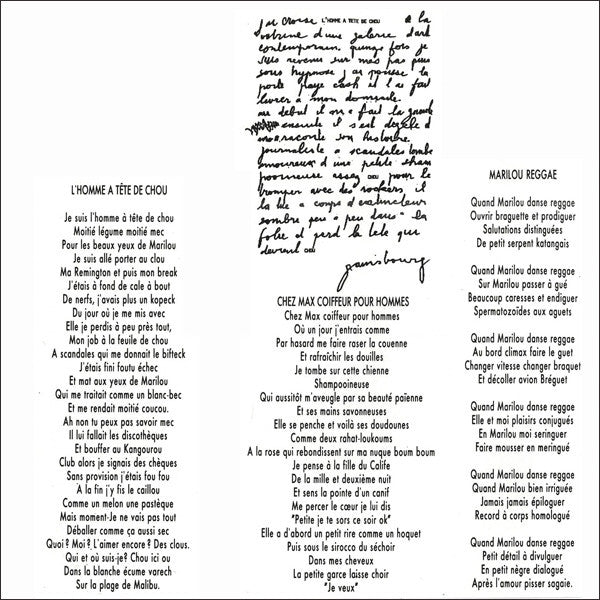 L'HOMME A TÊTE DE CHOU
Je suis l'homme à tête de chou
Moitié légume moitié mec
Pour les beaux yeux de Marilou
Je suis allé porter au clou
Ma Remington et puis mon break
J'étais à fond de cale à bout
De nerfs, j'avais plus un kopeck
Du jour où je me mis avec
Elle je perdis à peu près tout,
Mon job à la feuille de chou
A scandales qui me donnait le bifteck
J'étais fini foutu échec
Et mat aux yeux de Marilou
Qui me traitait comme un blanc-bec
Et me rendait moitié coucou.
Ah non tu peux pas savoir mec
Il lui fallait les discothèques
Et bouffer au Kangourou
Club alors je signais des chèques
Sans provision j'étais fou fou
A la fin j'y fis le caillou
Comme un melon une pastèque
Mais moment-Je ne vais pas tout
Déballer comme ça aussi sec
Quoi ? Moi ? L'aimer encore ? Des clous.
Qui et où suis-je? Chou ici ou
Dans la blanche écume varech
Sur la plage de Malibu.
j'ai croisé L'HOMME A TETE DE CHOU à la
vitrine d'une galerie d'art
contemporain. quinze fois je
suis revenu sur mes pas puis
sous hypnose j'ai poussé la
porte payé cash et l'ai fait
livrer à mon domicile.
au début il m'a fait la gueule
ensuite il s'est dégelé et
m'a raconté son histoire
journaliste à scandales tombé
amoureux d'une petite sham
pooineuse assez CHOU pour le
tromper avec des rockers, il
la tue à coups d'extincteur
sombre peu à peu dans la
folie et perd la tête qui
devient
gainsbourg
CHEZ MAX COIFFEUR POUR HOMMES
Chez Max coiffeur pour hommes
Où un jour j'entrais comme
Par hasard me faire raser la couenne
Et rafraîchir les douilles
Je tombe sur cette chienne
Shampooineuse
Qui aussitôt m'aveugle par sa beauté païenne
Et ses mains savonneuses
Elle se penche et voilà ses doudounes
Comme deux rahat-loukoums
A la rose qui rebondissent sur ma nuque boum boum
Je pense à la fille du Calife
De la mille et deuxième nuit
Et sens la pointe d'un canif
Me percer le cœur je lui dis
"Petite je te sors ce soir ok"
Elle a d'abord un petit rire comme un hoquet
Puis sous le sirocco du séchoir
Dans mes cheveux
La petite garce laisse choir
"Je veux"
MARILOU REGGAE
Quand Marilou danse reggae
Ouvrir braguette et prodiguer
Salutations distinguées
De petit serpent katangais
Quand Marilou danse reggae
Sur Marilou passer à gué
Beaucoup caresses et endiguer
Spermatozoïdes aux aguets
Quand Marilou danse reggae
Au bord climax faire le guet
Changer vitesse changer braquet
Et décoller avion Bréguet
Quand Marilou danse reggae
Elle et moi plaisirs conjugués
En Marilou moi seringuer
Faire mousser en meringué
Quand Marilou danse reggae
Quand Marilou bien irriguée
Jamais jamais épiloguer
Record à corps homologué
Quand Marilou danse reggae
Petit détail à divulguer
En petit nègre dialogué
Après l'amour pisser sagaie.